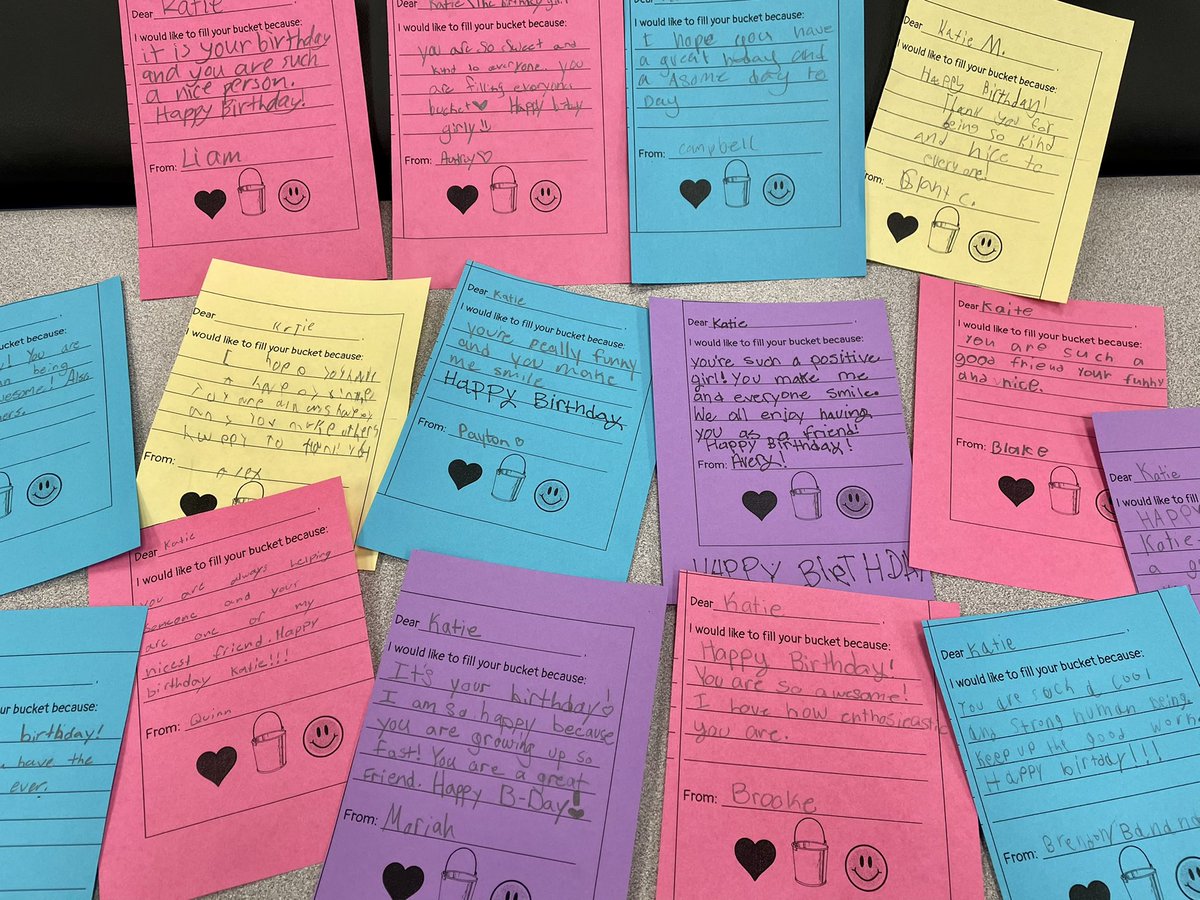 Dear Katie
I would like to fill your bucket because:
it is your birthday
and you are such
a nice person.
Happy Birthday.
From: Liam
Dear Katie \ The birthday girl
I would like to fill your bucket because:
you are so sweet and
kind to everyone. you
are filling everyones
bucket Happy bday
girly!!
From: Audrey
Dear
I would like to fill your bucket because:
I hope you have
a great bday and
a some day to
Day
From: Campbell
Dear Katie M.
I would like to fill your bucket because:
Happy Birthday!
Thank you for
being so kind
and nice to
everyone!
From: Grant C.
your bucket because:
You are
being
awesome! Also
Dear Katie
I would like to fill your bucket because:
I hope
have a
You are always happy
and you make others
happy to
From: Alex
Dear Katie
I would like to fill your bucket because:
you're really funny
and you make
me smile
Happy Birthday
From: Payton
Dear Katie
I would like to fill your bucket because:
you're such a positive
girl! You make me
and everyone smile.
We all enjoy having
you as a friend!
Happy Birthday!
From: Avery!
HAPPY BIRTHDA
Dear Kaite
I would like to fill your bucket because:
You are such a
good friend your funny
and nice.
From: Blake
Dear Katie
I would like to fill
HAPPY
Katie
a
your bucket because:
birthday!
have the
ever.
Dear Katie
I would like to fill your bucket because:
you are always helping
someone and your
are one of my
nicest friend. Happy
birthday Katie!!!
From: Quinn
Dear Katie
I would like to fill your bucket because:
It's your birthday!
I am so happy because
you are growing up so
fast! You are a great
Friend. Happy B-Day!
From: Mariah
Dear Katie
I would like to fill your bucket because:
Happy Birthday!
You are so awesome!
I love how enthosicastic
you are.
From: Brooke
Dear Katie
I would like to fill your bucket because:
You are such a cool
and strong human being,
Keep up the good work
Happy birthday!!!
From: Brendon/Banana